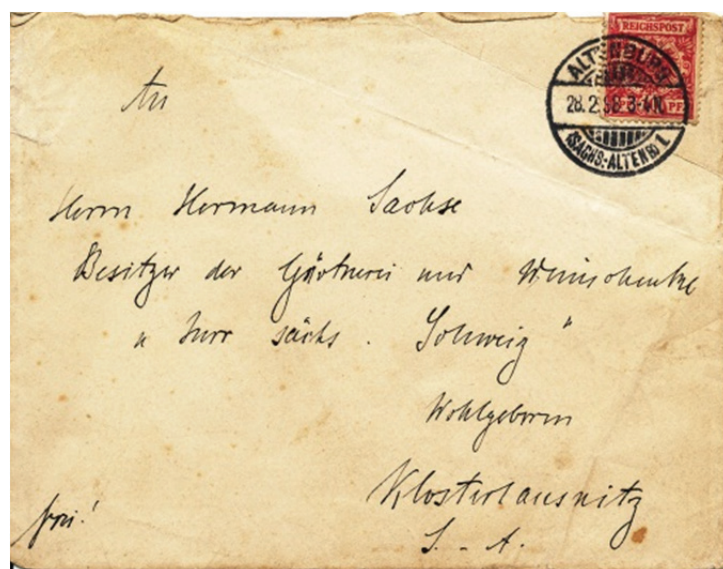 REICHSPOST
PF
ALTENBURG
28.2.98 3-4N.
(SACHS.-ALTENBG) 1.
An
Herrn Hermann Sachse
Besitzer der Gärtnerei und Weinschenke
„Zur sächs. Schweiz"
Wohlgeboren
Klosterlausnitz
S.-A.
frei!